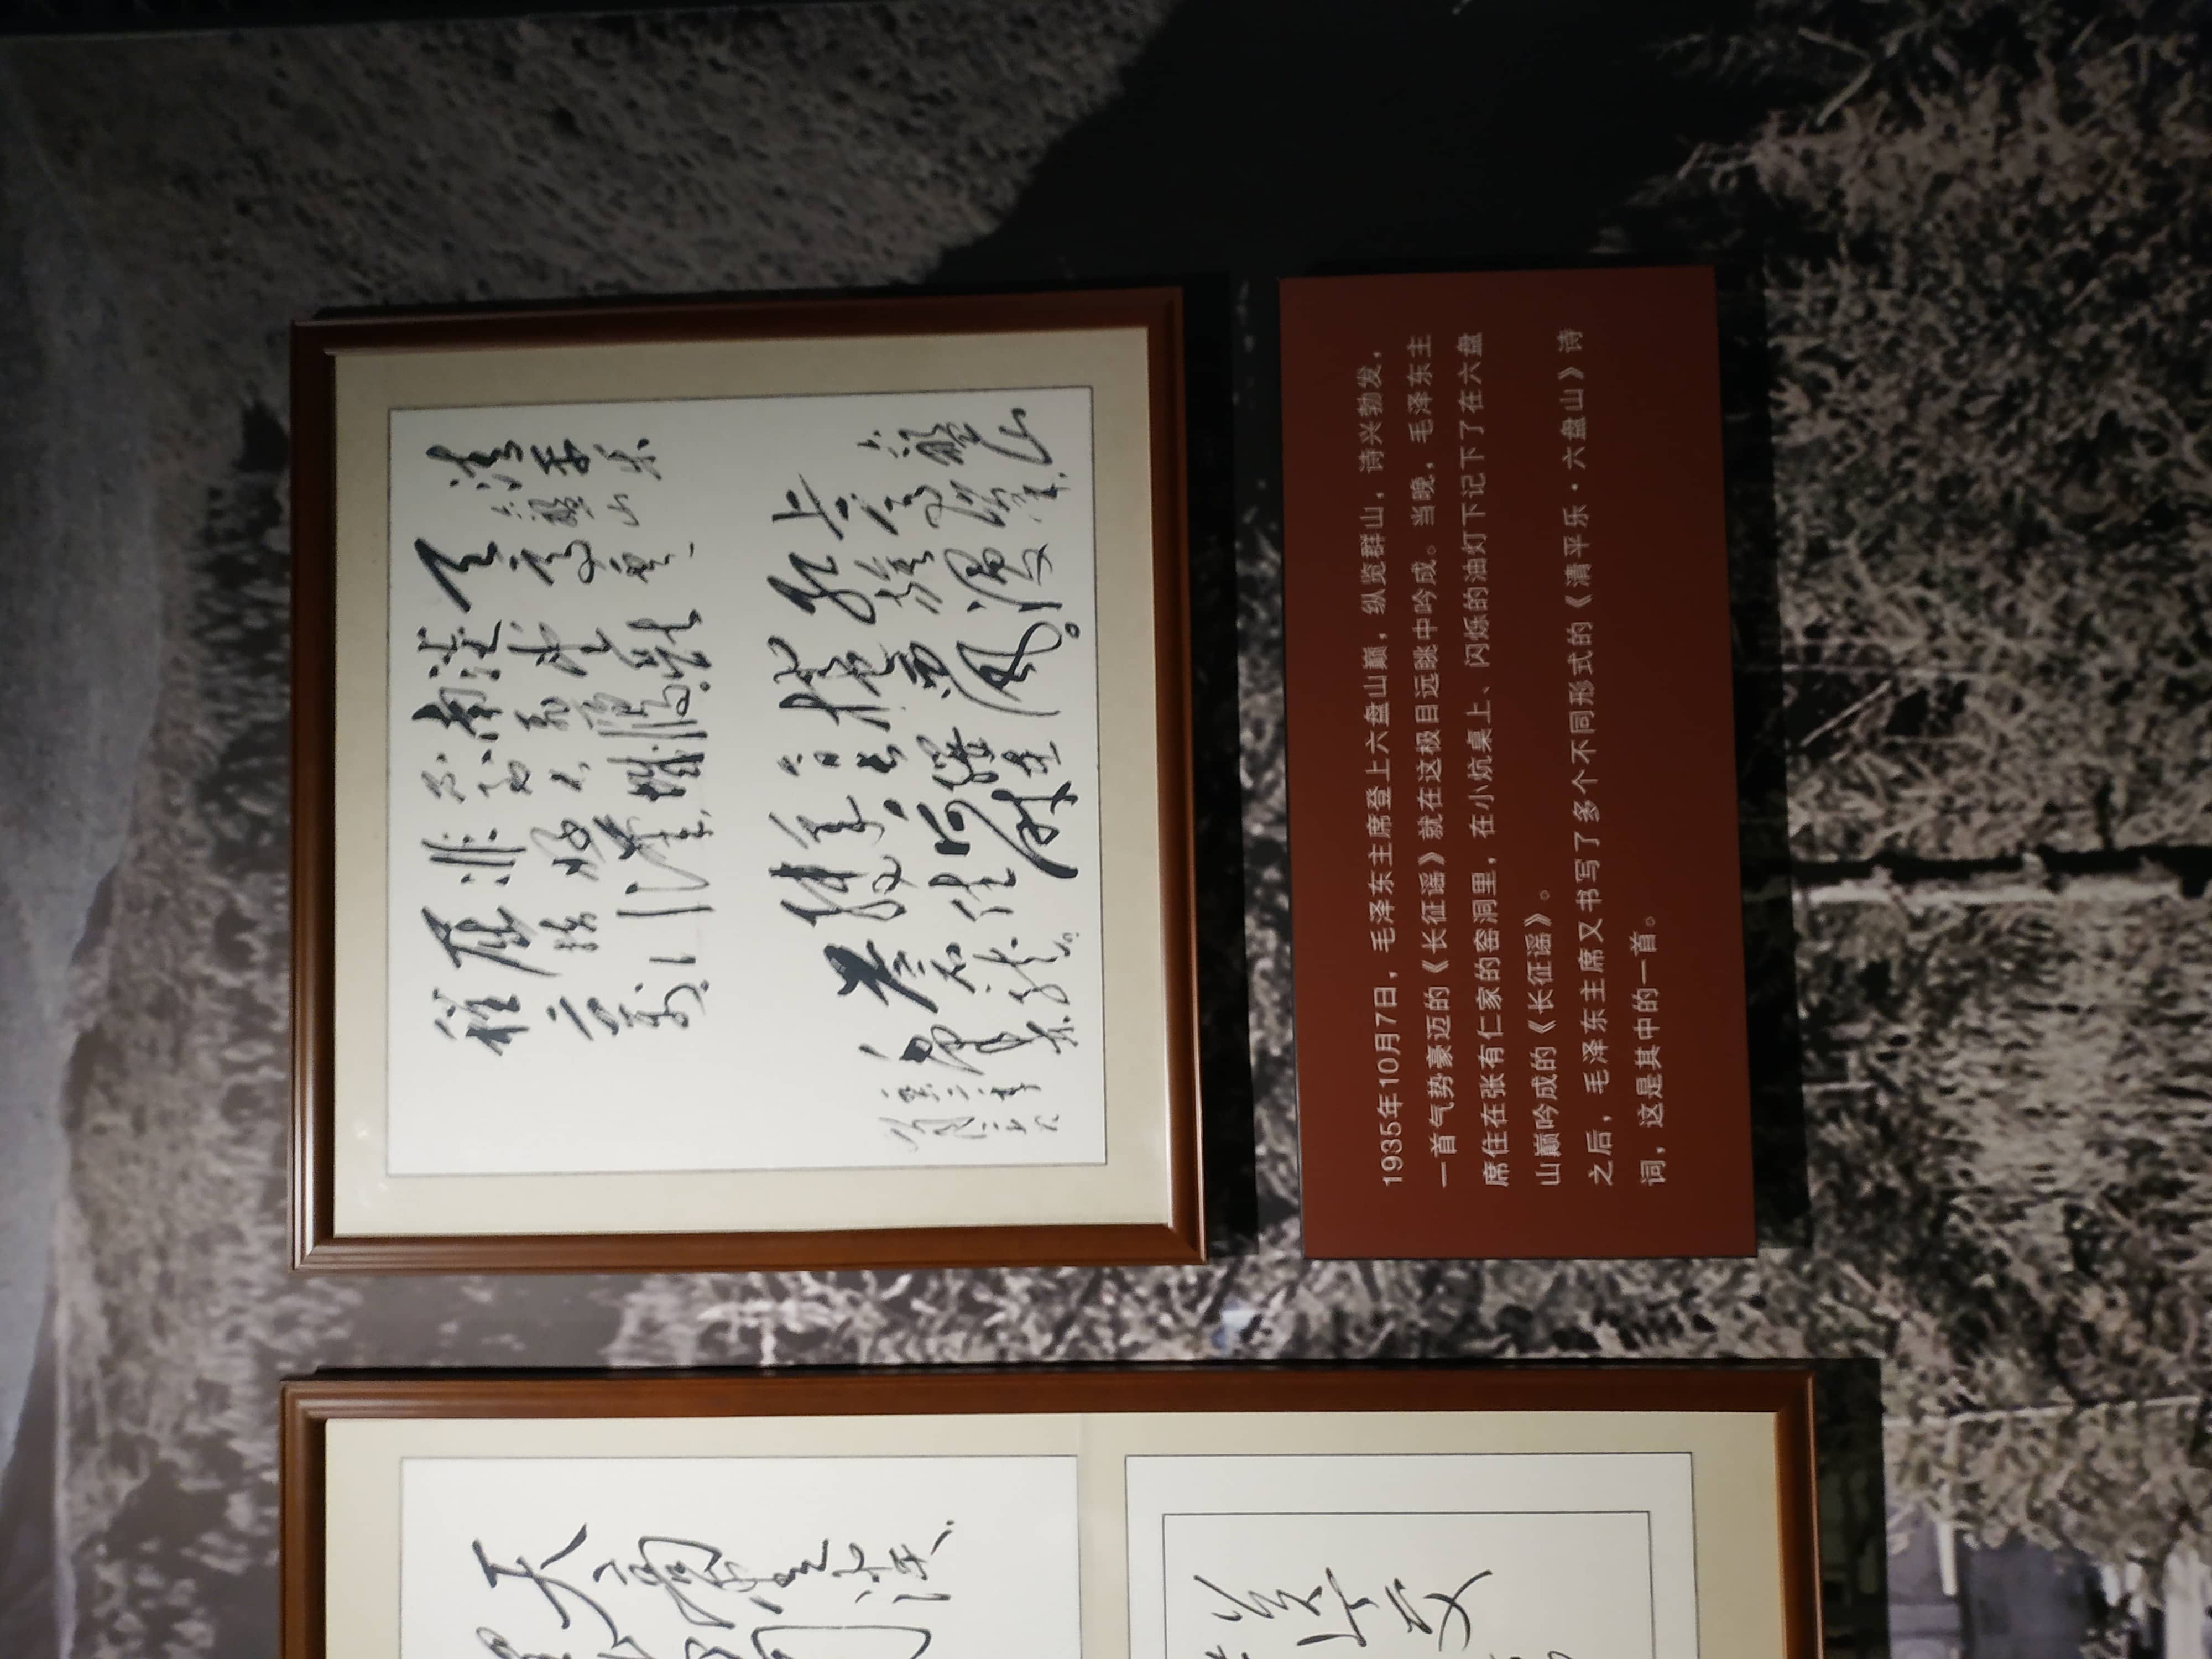 清平乐
六盘山
天高云
淡望断
南飞雁。
不到长城
非好汉,
屈指行
程二万。
六盘山
上高峰,
红旗漫
卷西风。
今日长缨在
手,何时
缚住
苍龙。
毛泽东
天高云淡
1935年10月7日，毛泽东主席登上六盘山巅，纵览群山，诗兴勃发，
一首气势豪迈的《长征谣》就在这极目远眺中吟成。当晚，毛泽东主
席住在张有仁家的窑洞里，在小炕桌上、闪烁的油灯下记下了在六盘
山巅吟成的《长征谣》。
之后，毛泽东主席又书写了多个不同形式的《清平乐·六盘山》诗
词，这是其中的一首。